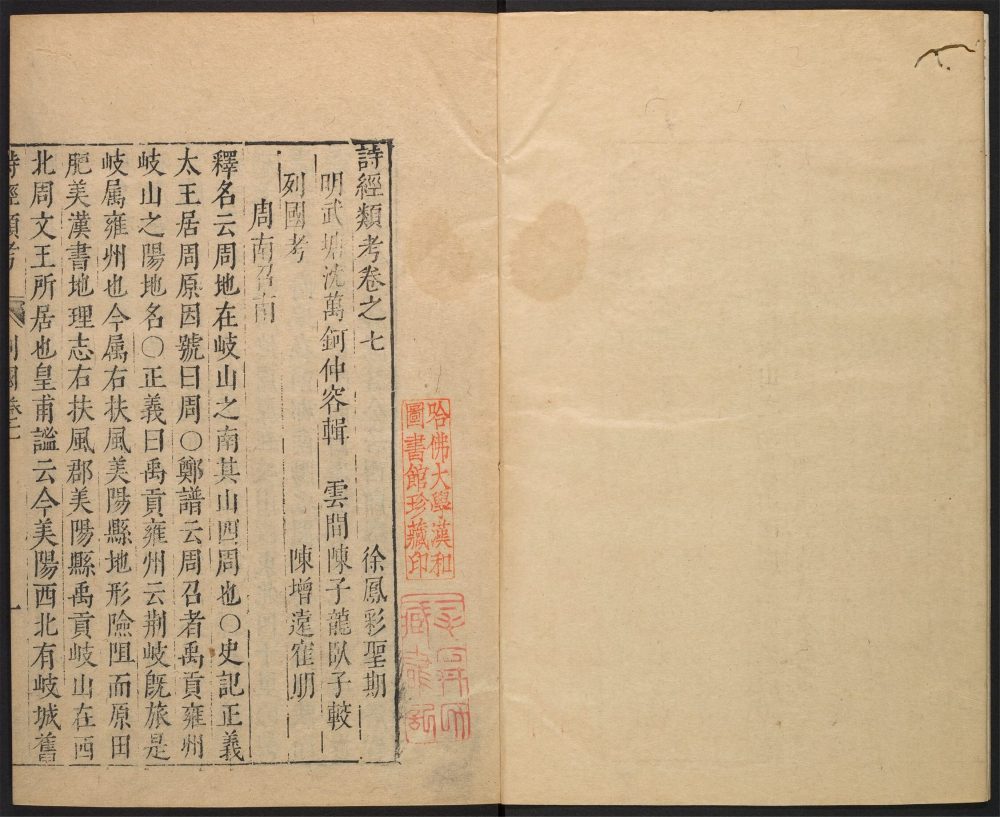 詩經類考卷之七 徐鳳彩聖期
明武塘沈萬鈳仲容輯 雲間陳子龍臥子較
列國考 陳增遠隺朋
周南召南
釋名云周地在岐山之南其山四周也〇史記正義
太王居周原因號曰周〇鄭譜云周召者禹貢雍州
岐山之陽地名〇正義曰禹貢雍州云荆岐旣旅是
岐属雍州也今属右扶風美陽縣地形險阻而原田
肥美漢書地理志右扶風郡美陽縣禹貢岐山在西
北周文王所居也皇甫謐云今美陽西北有岐城舊
詩經類考 列國 卷七 一
哈佛大學漢和
圖書館珍藏印